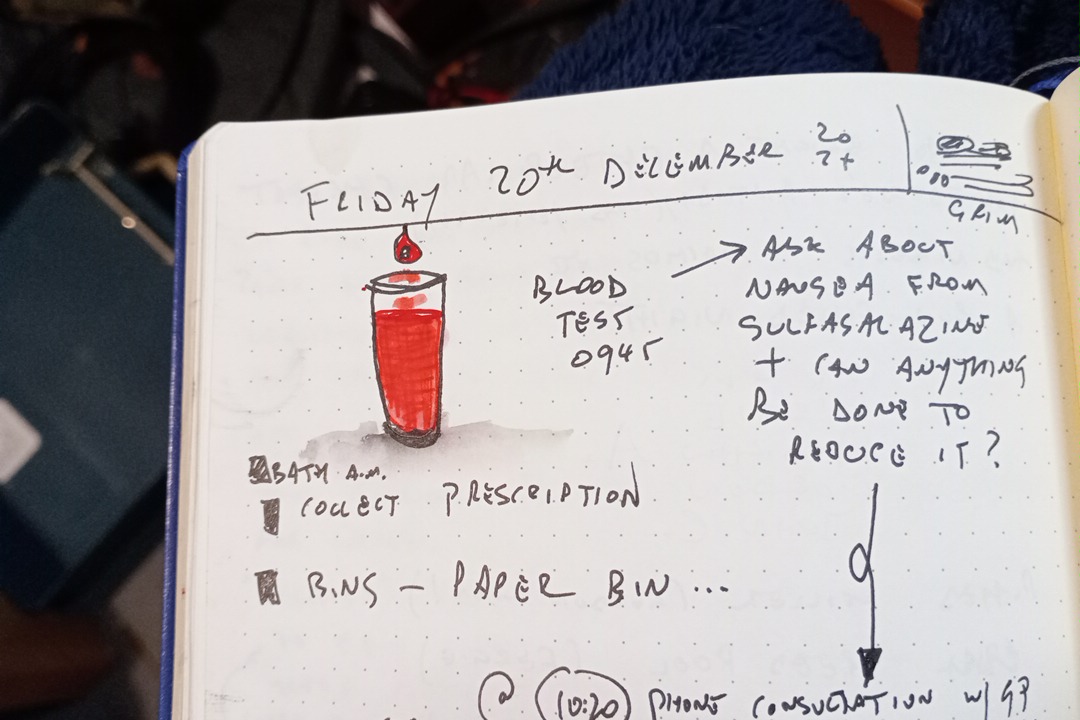 FRIDAY 20th DECEMBER 20
24
GRIM
BLOOD
TEST
0945
ASK ABOUT
NAUSEA FROM
SULFASALAZINE
+ CAN ANYTHING
BE DONE TO
REDUCE IT?
BATH A.M.
COLLECT PRESCRIPTION
BINS – PAPER BIN ...
@ 10:20 PHONE CONSULTATION W/ GP